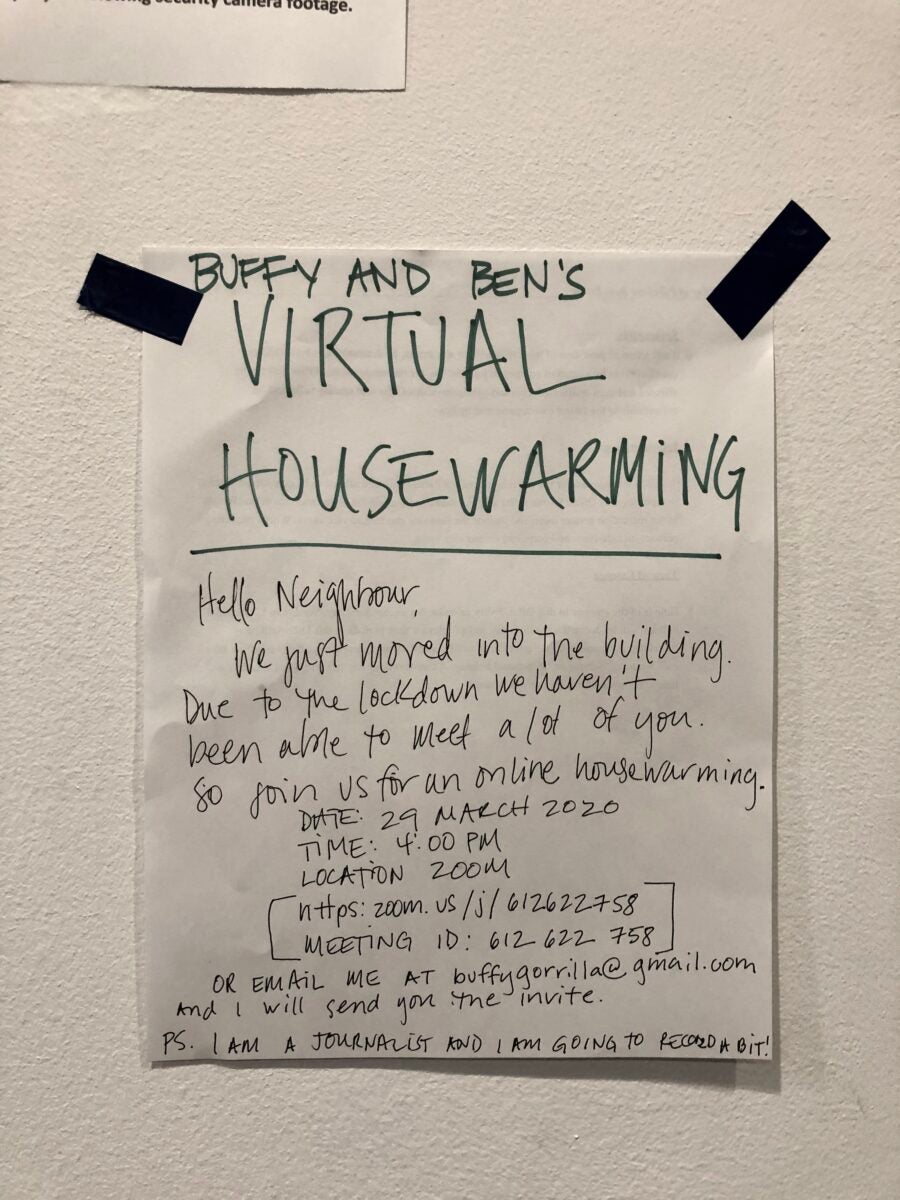 security camera footage.
BUFFY AND BEN'S
VIRTUAL
HOUSEWARMING
Hello Neighbour,
We just moved into the building.
Due to the lockdown we haven't
been able to meet a lot of you.
So join us for an online housewarming.
DATE: 29 MARCH 2020
TIME: 4:00 PM
LOCATION ZOOM
https: zoom.us/j/612622758
MEETING ID: 612 622 758
OR EMAIL ME AT buffygorrilla@gmail.com
And I will send you the invite.
PS. I AM A JOURNALIST AND I AM GOING TO RECORD A BIT!